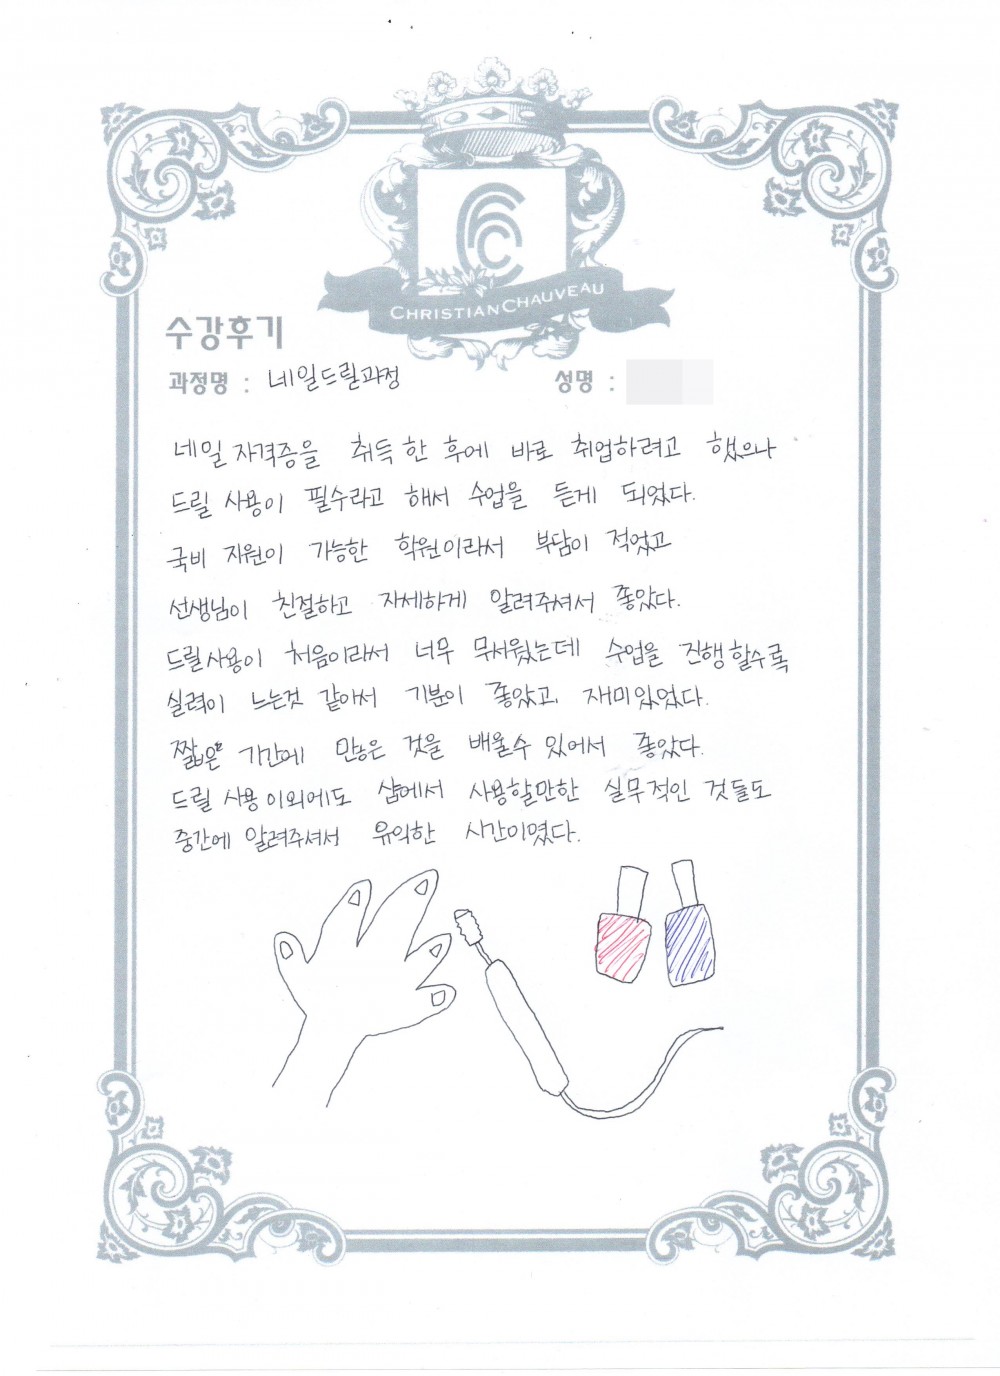 CHRISTIAN CHAUVEAU
수강후기
과정명 : 네일드릴과정 성명 :
네일 자격증을 취득 한 후에 바로 취업하려고 했으나
드릴 사용이 필수라고 해서 수업을 듣게 되었다.
국비 지원이 가능한 학원이라서 부담이 적었고
선생님이 친절하고 자세하게 알려주셔서 좋았다.
드릴사용이 처음이라서 너무 무서웠는데 수업을 진행할수록
실력이 느는것 같아서 기분이 좋았고 재미있었다.
짧은 기간에 많은 것을 배울수 있어서 좋았다.
드릴 사용 이외에도 샵에서 사용할만한 실무적인 것들도
중간에 알려주셔서 유익한 시간이였다.